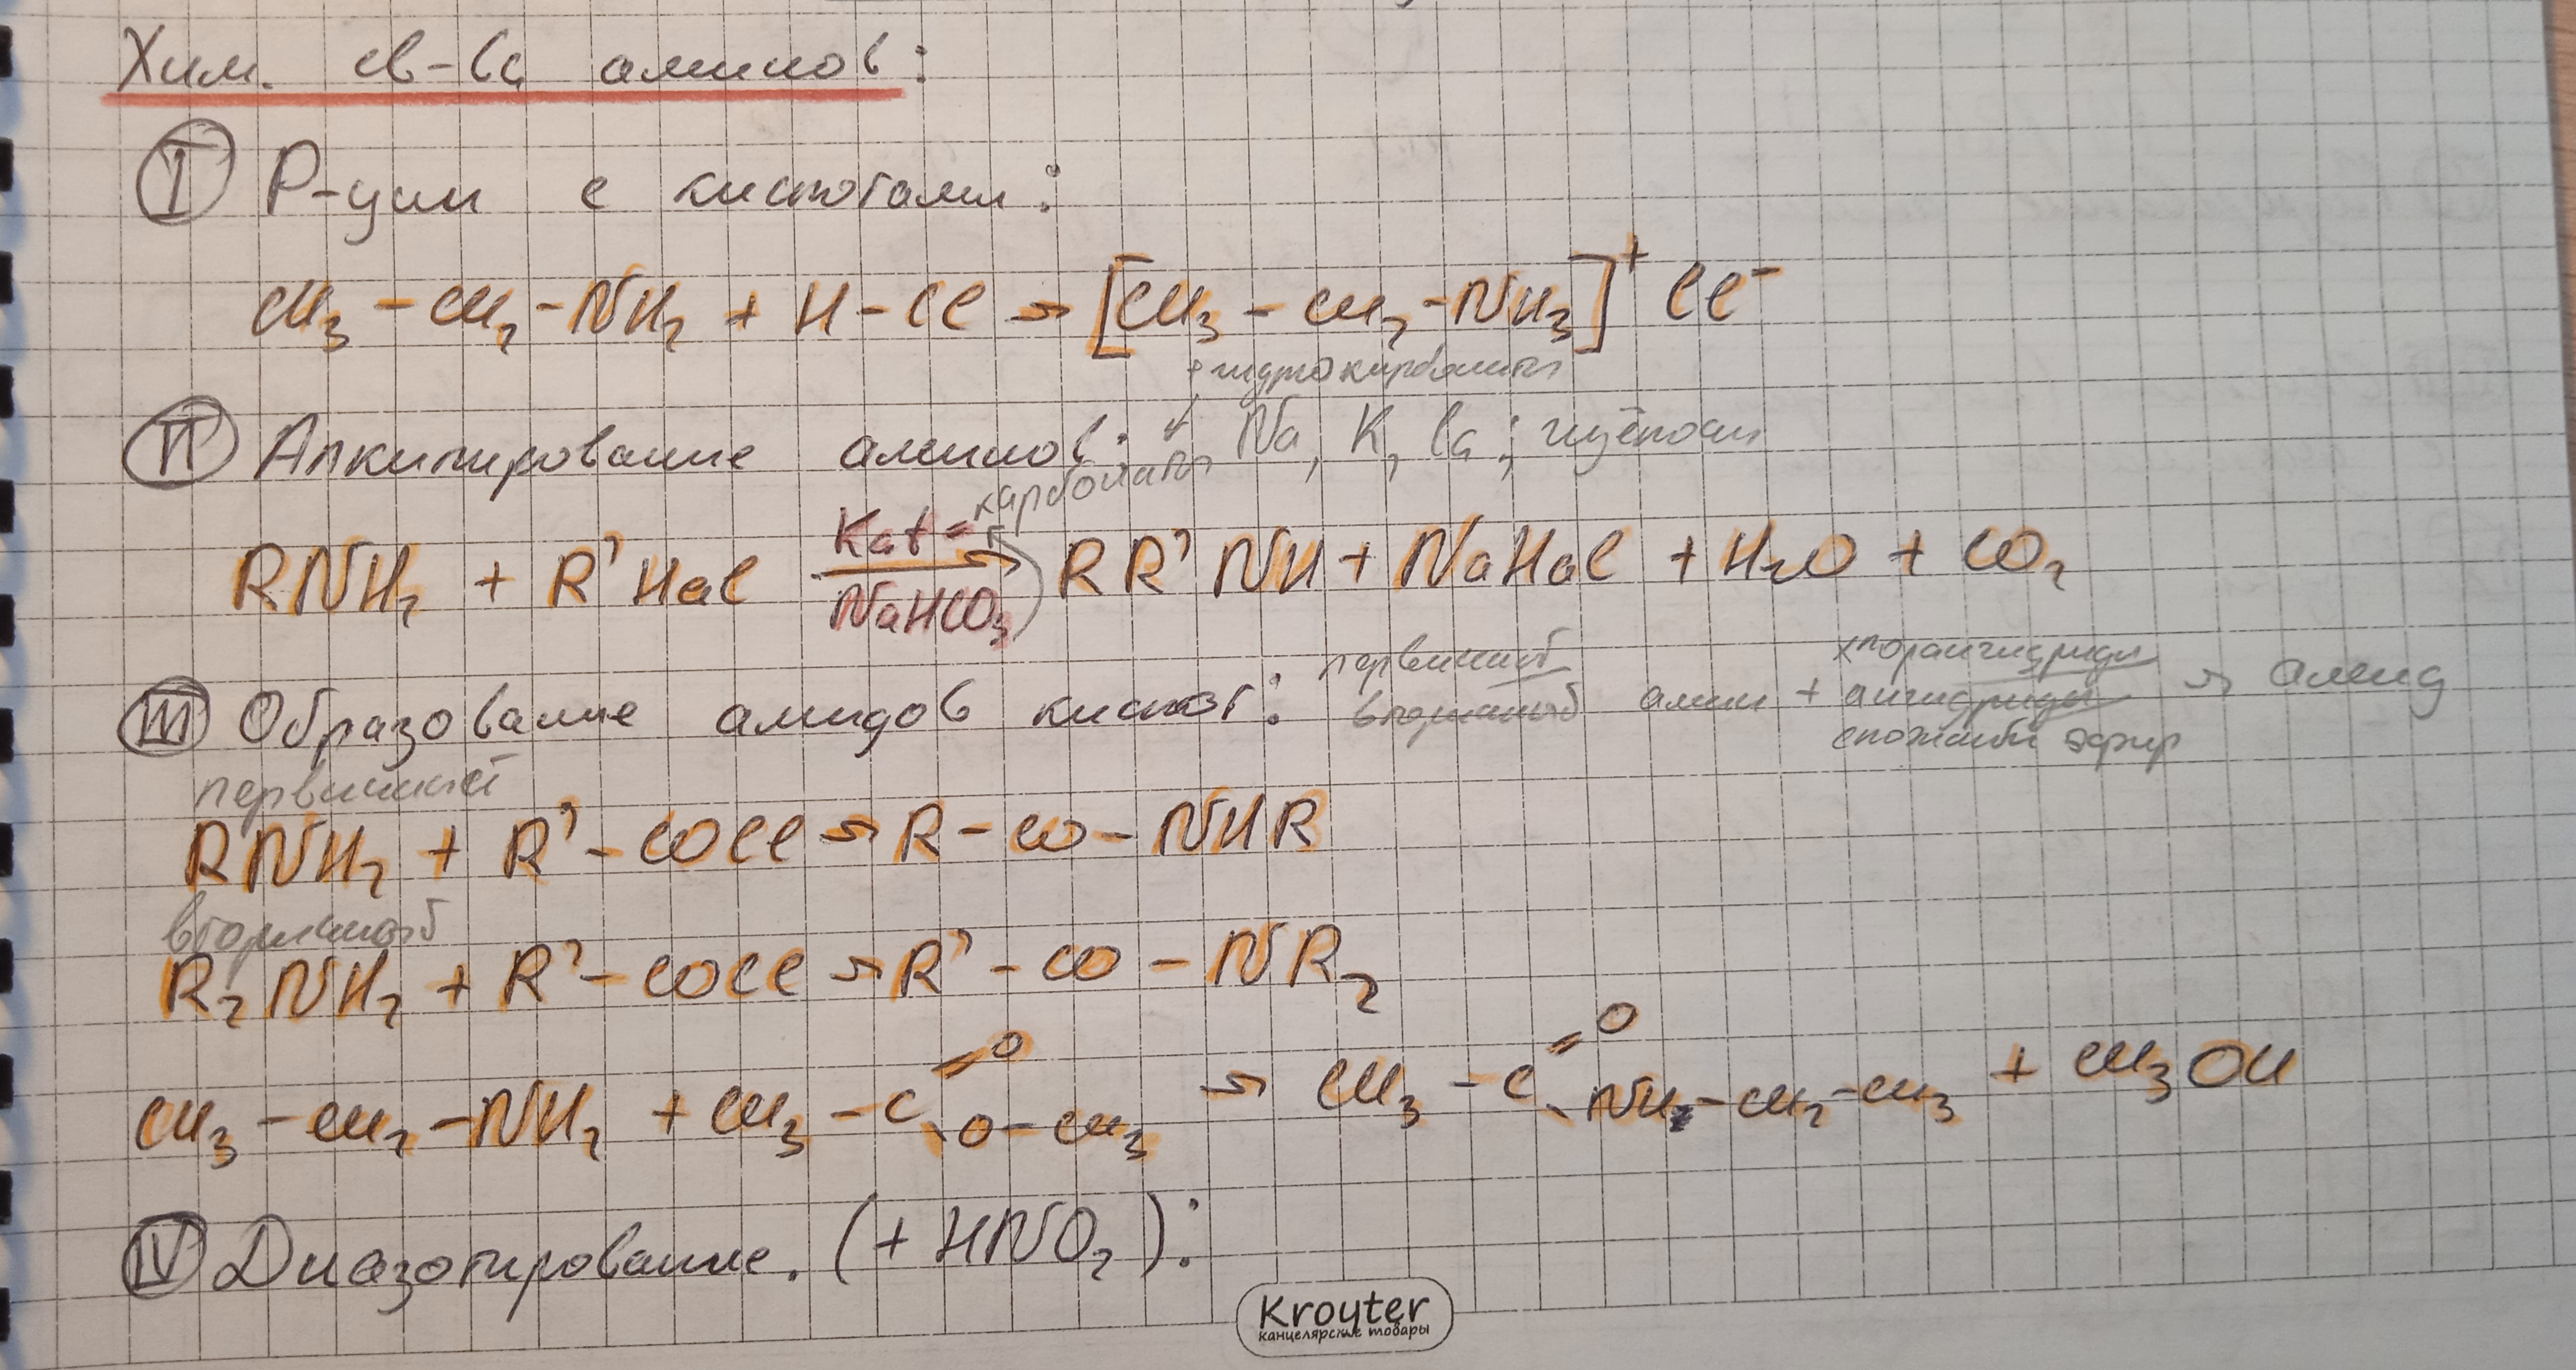 Хим. св-ва аминов:
I Р-ции с кислотами:
CH₃ - CH₂ - NH₂ + H - Cl → [CH₃ - CH₂ - NH₃]⁺ Cl⁻
+ гидрокарбонаты
II Алкилирование аминов: Na, K, Ca; щёлочи
карбонаты
Kat =
RNH₂ + R' Hal → RR' NH + NaHal + H₂O + CO₂
NaHCO₃
III Образование амидов кислот:
первичный хлорангидриды
вторичный амин + ангидриды → амид
сложный эфир
первичный
RNH₂ + R' - COCl → R - CO - NHR
вторичный
R₂NH₂ + R' - COCl → R' - CO - NR₂
CH₃ - CH₂ - NH₂ + CH₃ - C =O O - CH₃ → CH₃ - C =O NH - CH₂ - CH₃ + CH₃OH
IV Диазотирование. (+ HNO₂):
Kroyter
канцелярские товары